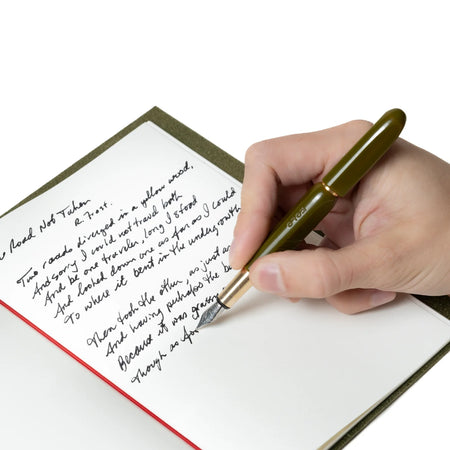 Road Not Taken
R. Frost.
Two roads diverged in a yellow wood,
And sorry I could not travel both
And be one traveler, long I stood
And looked down one as far as I could
To where it bent in the undergrowth
Then took the other, as just as
And having perhaps the be
Because it was grass
Though as for